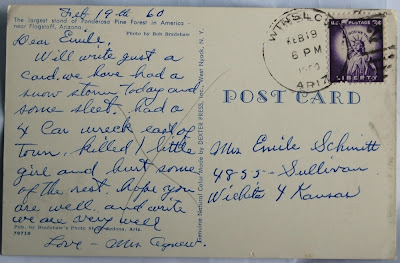 Feb 19-th 60
The largest stand of Ponderosa Pine Forest in America -
near Flagstaff, Arizona.
Photo by Bob Bradshaw
Dear Emilie,
Will write just a
card, we have had a
snow storm, Today and
some sleet. had a
4 Car wreck east of
Town, killed 1 little
girl and hurt some
of the rest. hope you
are well. and write
we are very well
Pub. by Bradshaw's Photo Shop, Sedona, Ariz.
70719
Love - Mrs Agnew.
Genuine Natural Color Made by DEXTER PRESS, Inc., West Nyack, N. Y.
POST CARD
WINSLO
FEB 19
6 PM
1960
ARIZ
U.S. POSTAGE
LIBERTY
Mrs Emile Schmitt
4855 - Sullivan
Wichita 4 Kansas